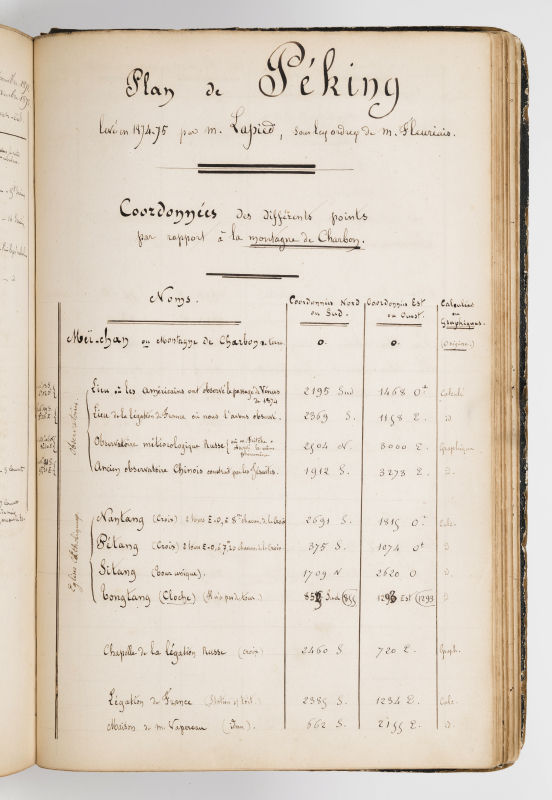 Plan de Péking
levé en 1874-75 par M. Lapied, sous les ordres de M. Fleuriais.
Coordonnées des différents points
par rapport à la montagne de Charbon.
Noms. Coordonnées Nord ou Sud. Coordonnées Est ou Ouest. Calculées ou Graphiques.
Meï-chan ou Montagne de Charbon 0. 0. (Origine.)
Lieu où les américains ont observé le passage de Vénus de 1874 2195 Sud 1468 Ot Calculé
Lieu de la légation de France où nous l'avons observé. 2369 S. 1158 E. D
Observatoire météorologique Russe 2504 N. 3000 E. Graphique
Ancien observatoire Chinois construit par les Jésuites. 1912 S. 3273 E. D.
Nantang (Croix) 2 tours E-O, à 8m chacune de la Croix 2691 S. 1815 Ot Calc.
Pétang (Croix) 2 tours E-O, à 7m,20 chacune de la Croix 375 S. 1074 Ot D
Sitang (tour unique). 1709 N 2620 O D.
Tongtang (Cloche) (Il n'a pas de tour.) Sud (855) Est (1293) D
Chapelle de la légation Russe (croix) 2460 S 720 E. Graph.
Légation de France 2385 S. 1234 E. Calc.
Maison de M. Vapereau 662 S. 2155 E. D.